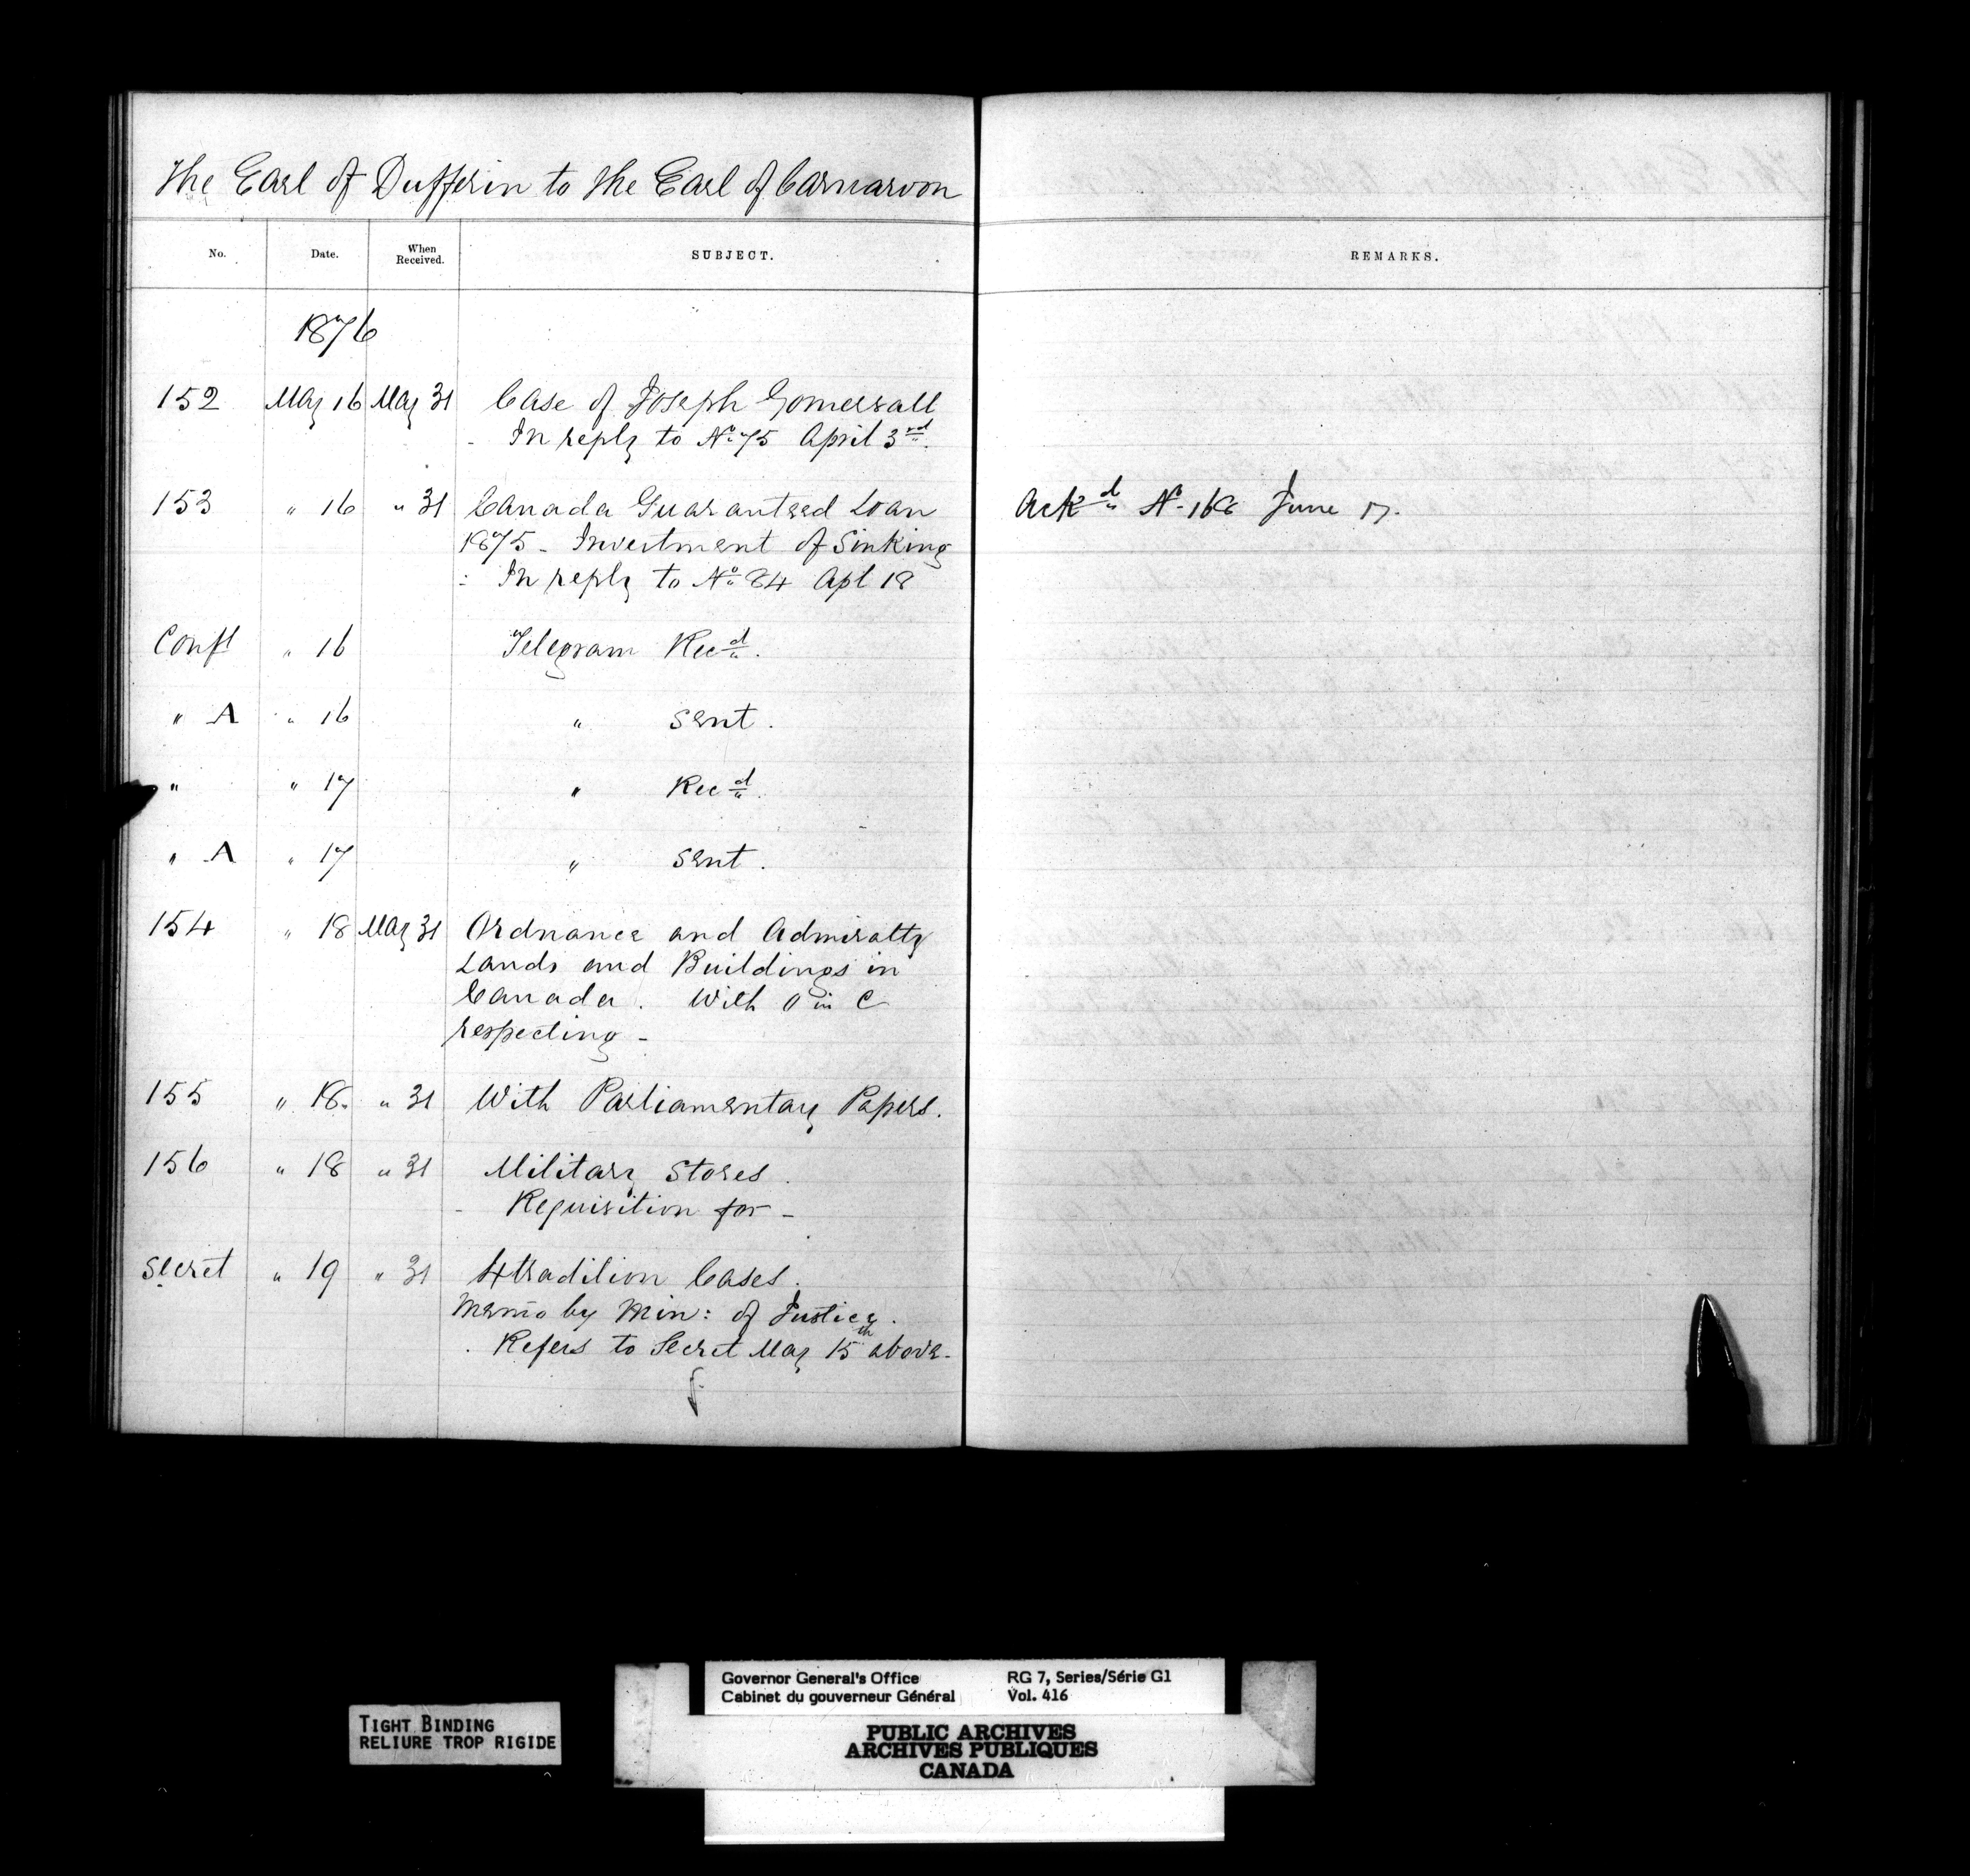 The Earl of Dufferin to the Earl of Carnarvon
No. Date. When Received. SUBJECT. REMARKS.
1876
152 May 16 May 31 Case of Joseph Gomersall
- In reply to No 75 April 3rd.
153 " 16 " 31 Canada Guaranteed Loan Ackd No 168 June 17.
1875 - Investment of Sinking
: In reply to No 84 Apl 18
Confl " 16 Telegram Recd.
" A " 16 " sent.
" " 17 " Recd.
" A " 17 " sent.
154 " 18 May 31 Ordnance and Admiralty
Lands and Buildings in
Canada. With O in C
respecting -
155 " 18. " 31 With Parliamentary Papers.
156 " 18 " 31 Military Stores.
- Requisition for -
Secret " 19 " 31 Xtradition Cases.
Memo by Min: of Justice.
. Refers to Secret May 15th above -
TIGHT BINDING
RELIURE TROP RIGIDE
Governor General's Office RG 7, Series/Série G1
Cabinet du gouverneur Général Vol. 416
PUBLIC ARCHIVES
ARCHIVES PUBLIQUES
CANADA